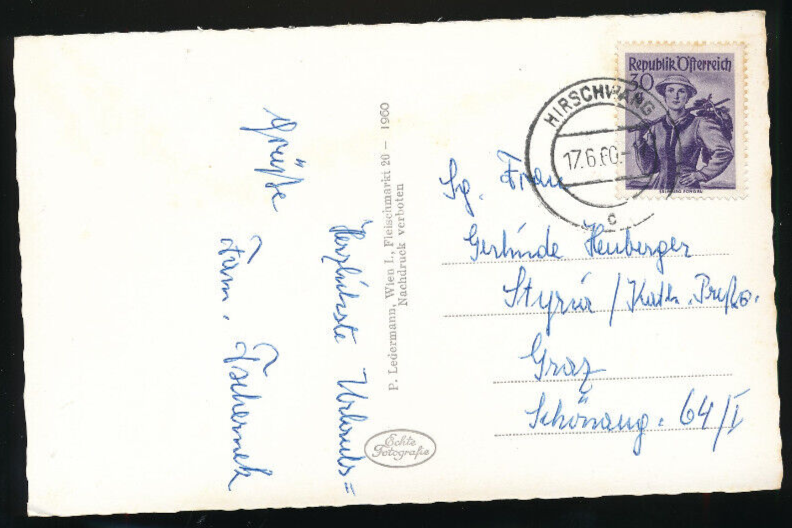 Herzlichste Urlaubs=
Grüße
Fam. Tschernek
P. Ledermann, Wien I., Fleischmarkt 20 – 1960
Nachdruck verboten
Echte
Fotografie
Republik Österreich
30
HIRSCHWANG
17.6.60.
c
Sg. Frau
Gertrude Heuberger
Styria / Kath. Preßv.
Graz
Schönaug. 64/I